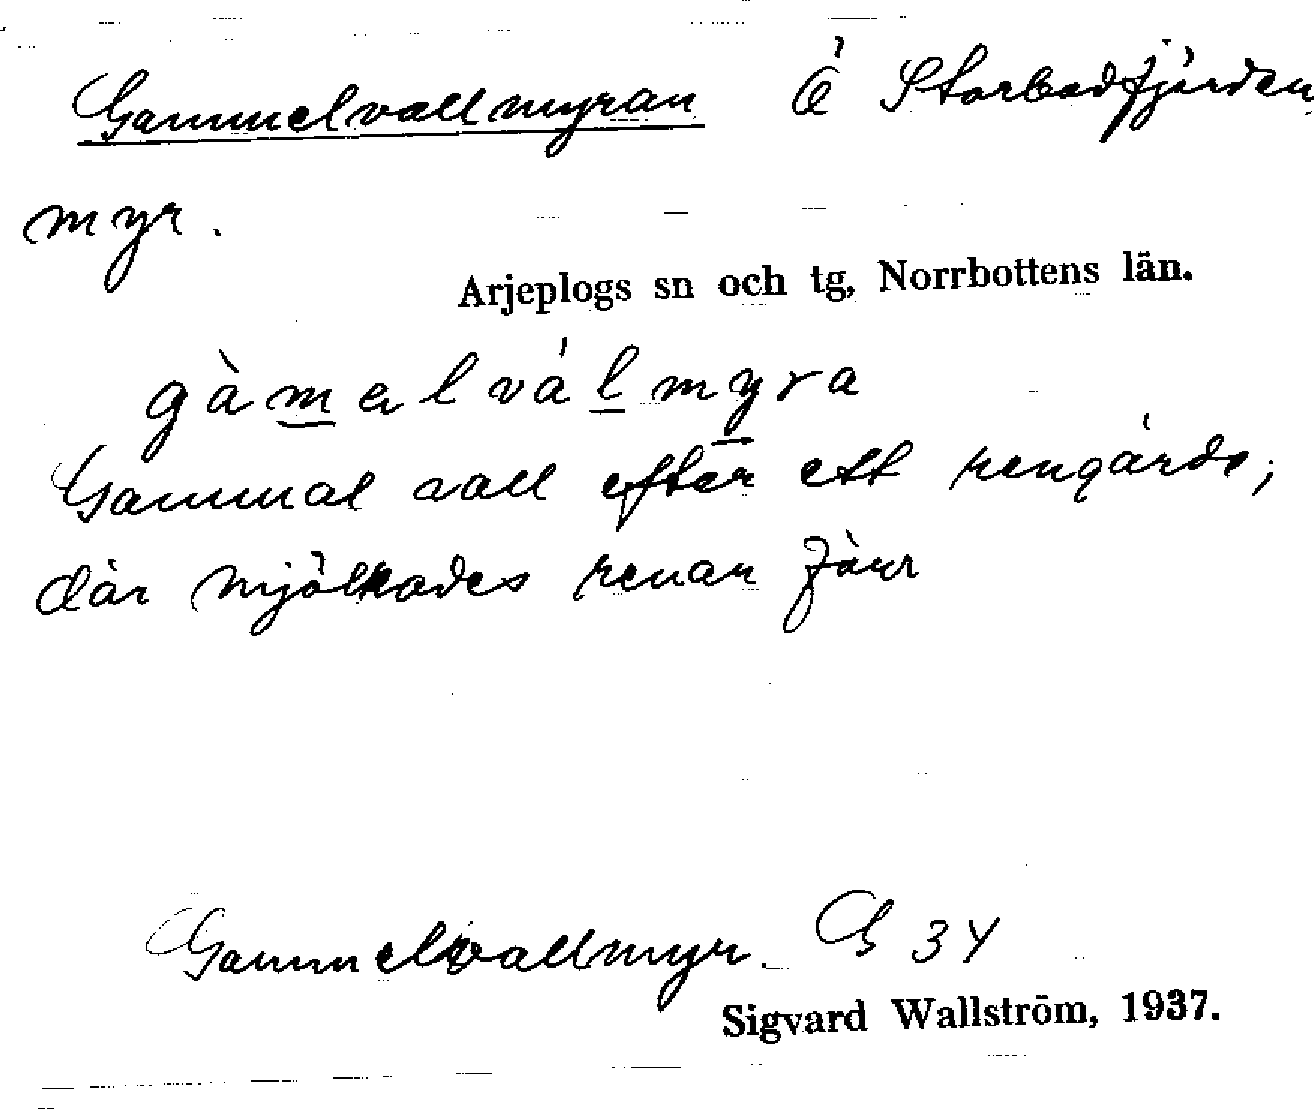 Gammelvallmyran Ö Storbodfjärden
myr.
Arjeplogs sn och tg, Norrbottens län.
gàmelválmyra
Gammal vall efter ett rengärde,
där mjölkades renar förr
Gammelvallmyr. G 34
Sigvard Wallström, 1937.